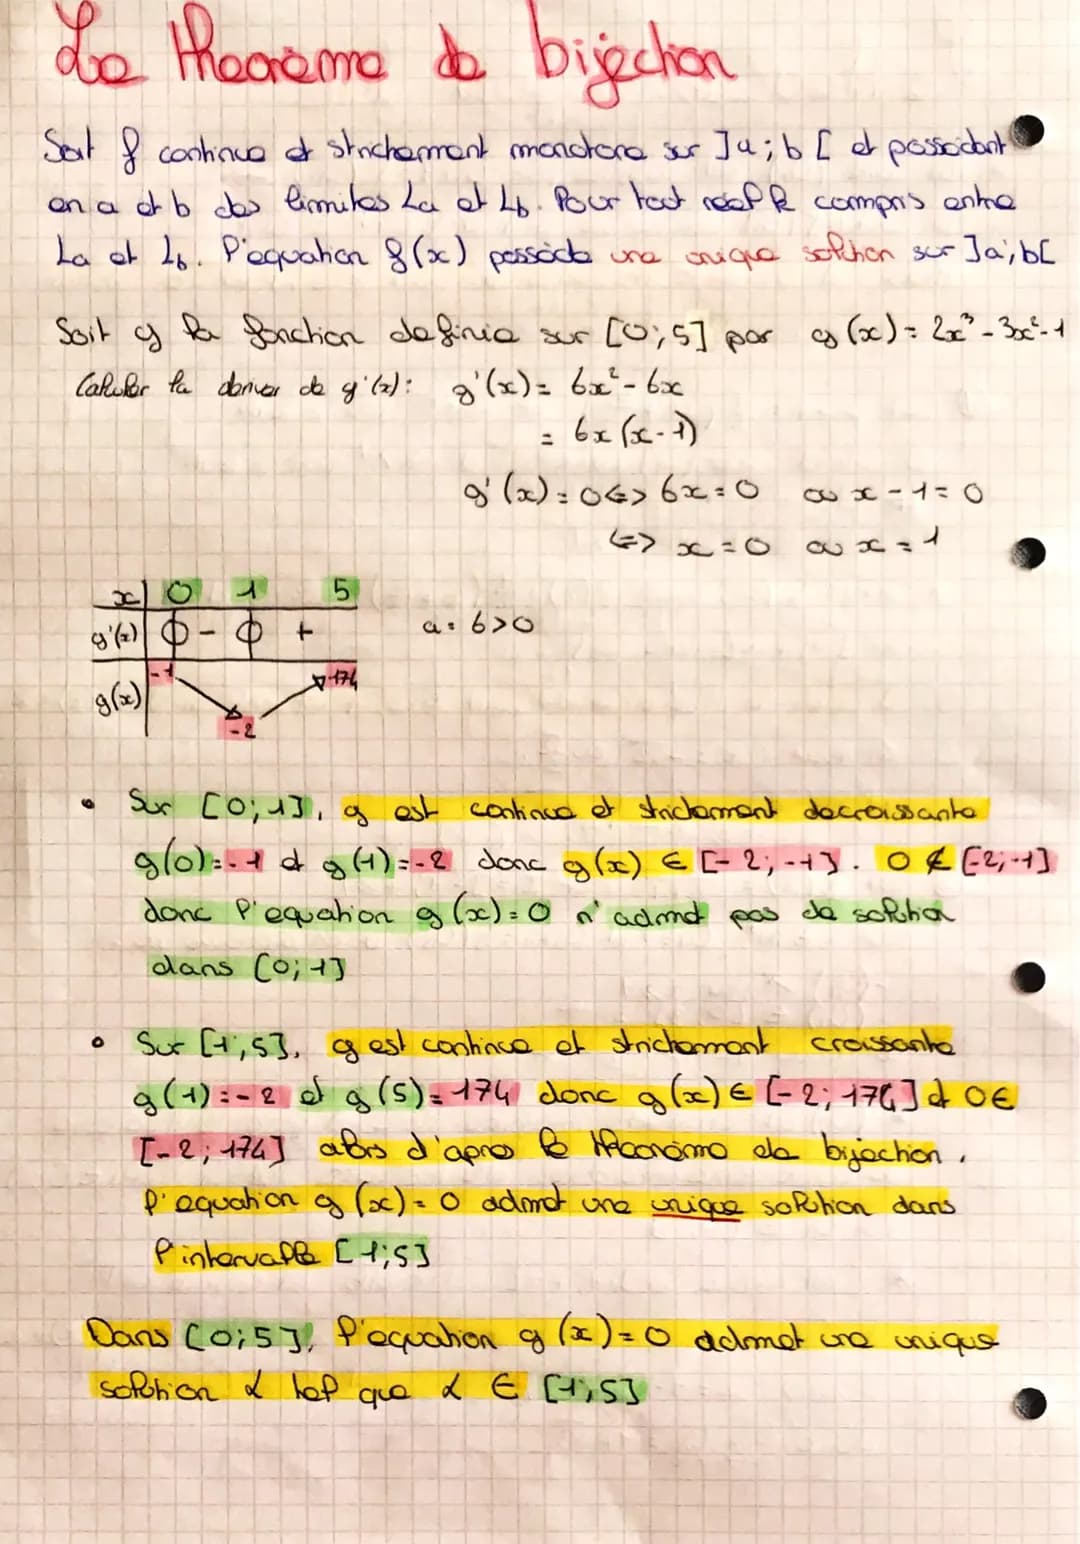 Le theorème de bijection
Soit f continue et strictement monotone sur ]a;b[ et possédant
en a et b des limites La et Lb. Pour tout réel k compris entre
La et Lb. l'equation f(x) possède une unique solution sur ]a;b[
Soit g la fonction definie sur [0;5] par g(x) = 2x³-3x²-1
Calculer la deriver de g'(x): g'(x) = 6x²-6x
= 6x(x-1)
g'(x) = 0 <=> 6x = 0 ou x-1 = 0
<=> x = 0 ou x = 1
x 0 1 5
g'(x) 0 - 0 + a = 6>0
-1 174
g(x)
-2
• Sur [0;1], g est continue et strictement decroissante
g(0)=-1 et g(1)=-2 donc g(x) ∈ [-2;-1]. 0 ∉ [-2;-1]
donc l'equation g(x)=0 n'admet pas de solution
dans [0;1]
• Sur [1;5], g est continue et strictement croissante
g(1)=-2 et g(5)=174 donc g(x) ∈ [-2;174] et 0∈
[-2;174] alors d'apres le théorème de bijection,
l'equation g(x)=0 admet une unique solution dans
l'intervalle [1;5]
Dans [0;5], l'equation g(x)=0 admet une unique
solution α tel que α ∈ [1;5]